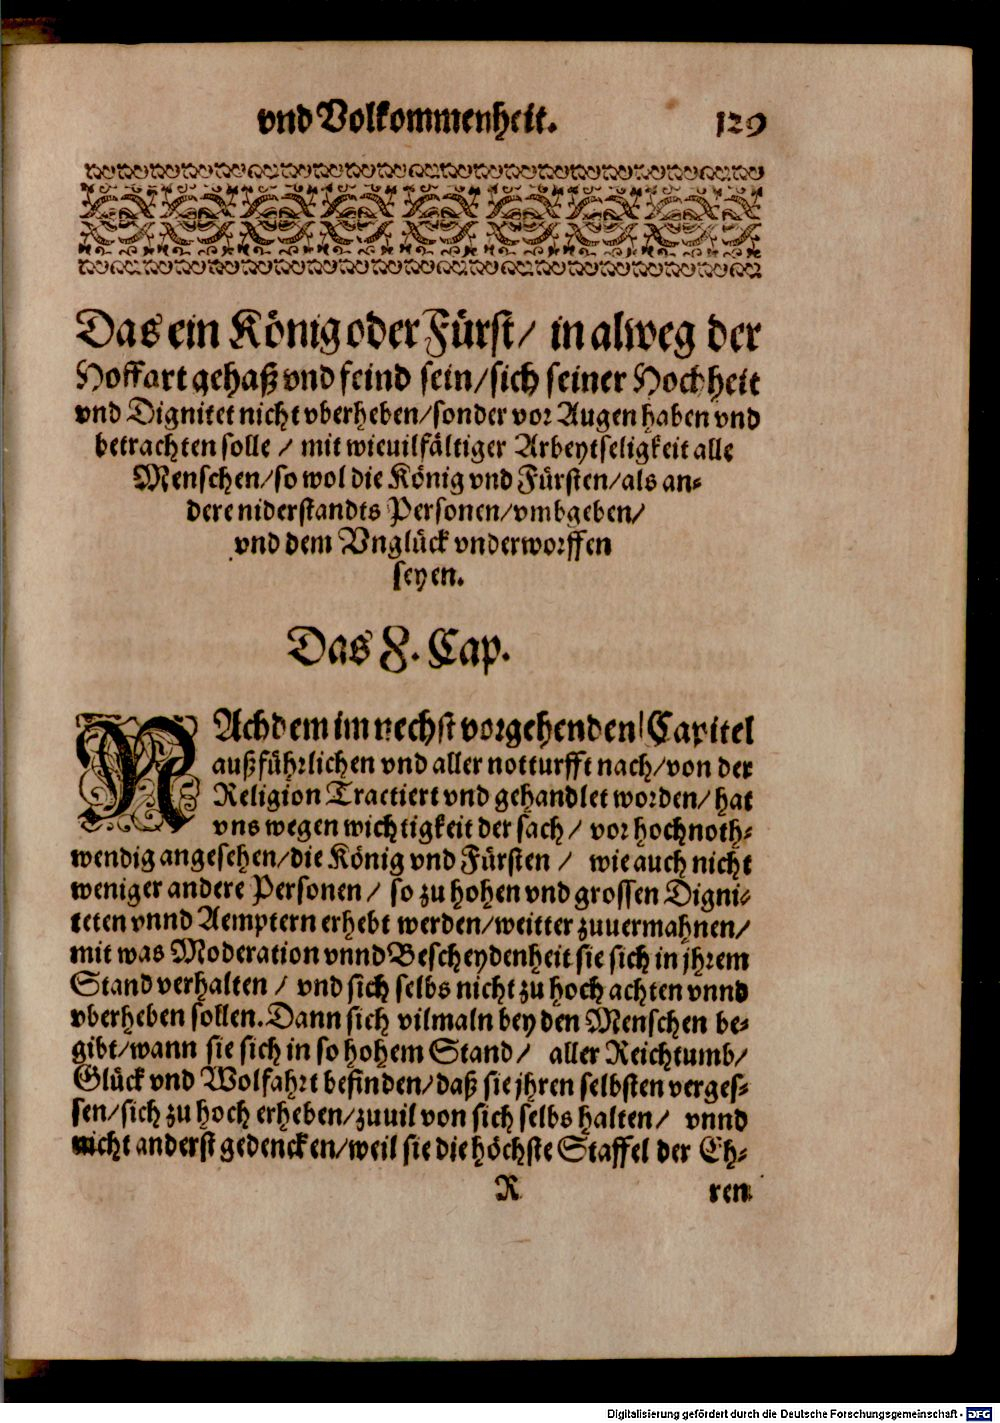 vnd Volkommenheit. 129
Das ein König oder Fürst/ in alweg der
Hoffart gehaß vnd feind sein/sich seiner Hochheit
vnd Dignitet nicht vberheben/sonder vor Augen haben vnd
betrachten solle / mit wieuilfältiger Arbeytseligkeit alle
Menschen/so wol die König vnd Fürsten/als an-
dere niderstandts Personen/vmbgeben/
vnd dem Vnglück vnderworffen
seyen.
Das 8. Cap.
NAchdem im nechst vorgehenden Capitel
außführlichen vnd aller notturfft nach/von der
Religion Tractiert vnd gehandlet worden/ hat
vns wegen wichtigkeit der sach/ vor hochnoth-
wendig angesehen/die König vnd Fürsten / wie auch nicht
weniger andere Personen / so zu hohen vnd grossen Digni-
teten vnnd Aemptern erhebt werden/weitter zuuermahnen/
mit was Moderation vnnd Bescheydenheit sie sich in jhrem
Stand verhalten / vnd sich selbs nicht zu hoch achten vnnd
vberheben sollen. Dann sich vilmaln bey den Menschen be-
gibt/wann sie sich in so hohem Stand/ aller Reichtumb/
Glück vnd Wolfahrt befinden/daß sie jhren selbsten verges-
sen/sich zu hoch erheben/zuuil von sich selbs halten/ vnnd
nicht anderst gedencken/weil sie die höchste Staffel der Eh-
R ren
Digitalisierung gefördert durch die Deutsche Forschungsgemeinschaft - DFG